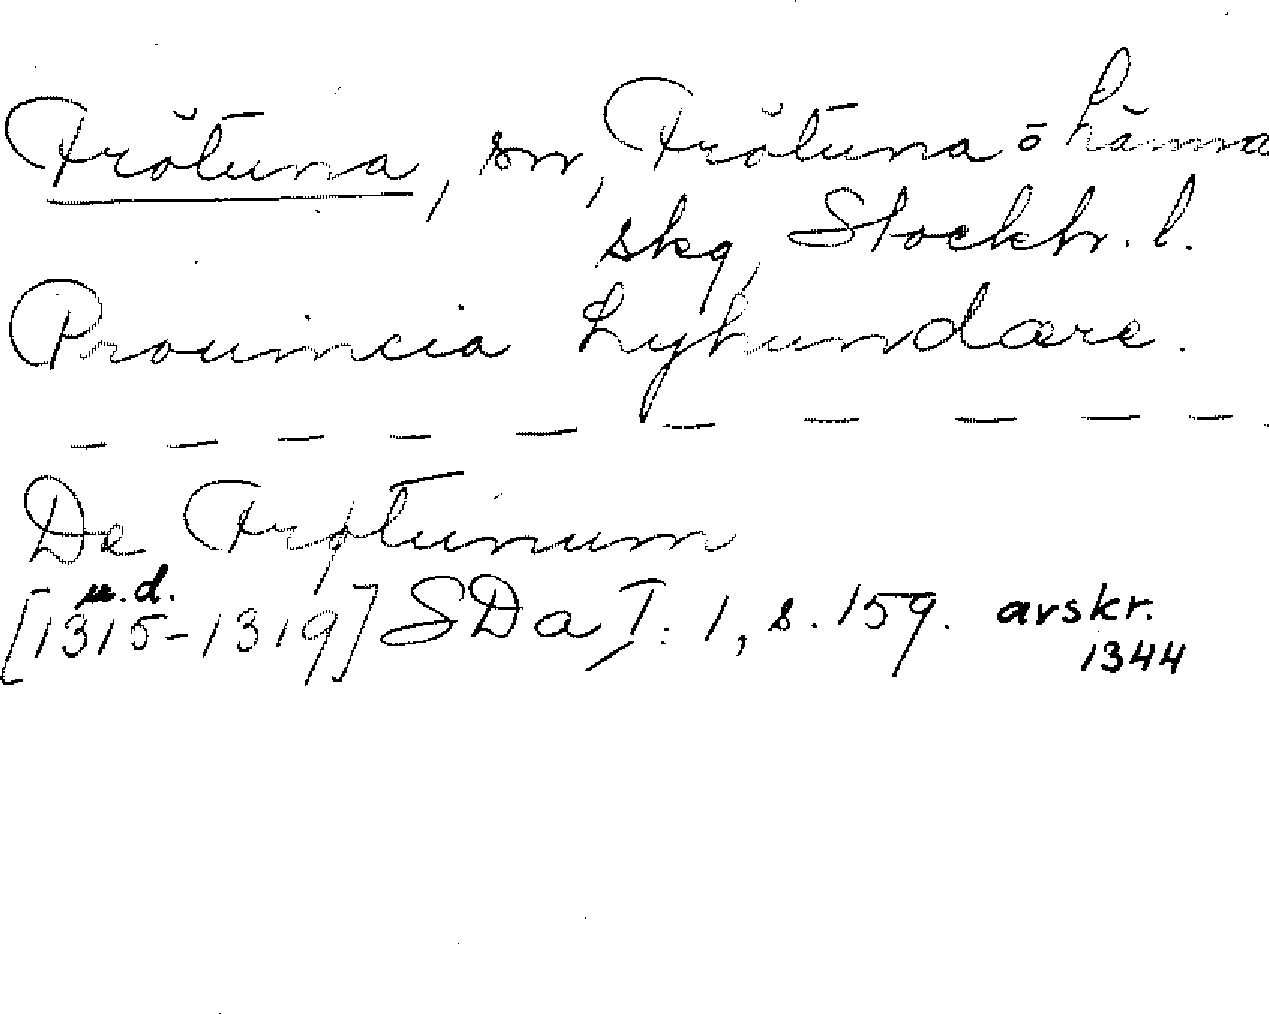 Frötuna, sn, Frötuna o Länna
skg, Stockh. l.
Prouincia Lyhundære.
— — — — — — — — —
De Frøtunum
u.d.
[1315-1319] SDa I: 1, s. 159. avskr.
1344